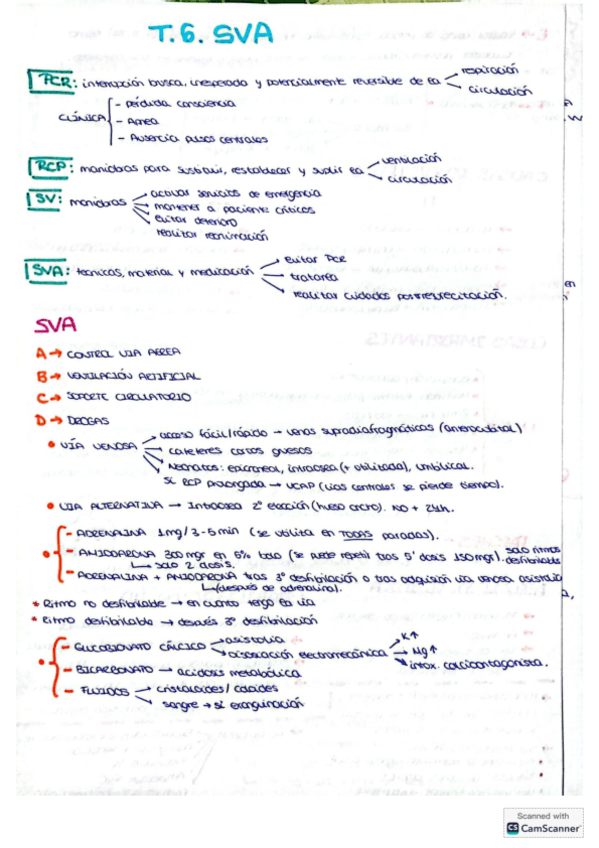 T.6. SVA
PCR: interrupción brusca, inesperada y potencialmente reversible de la respiración
circulación
CLÍNICA - Pérdida consciencia
- Apnea
- Ausencia pulsos centrales
RCP: maniobras para sustituir, restablecer y suplir la ventilación
circulación
SV: maniobras activar servicios de emergencia
mantener a paciente críticos
evitar deterioro
realizar reanimación
SVA: tecnicas, material y medicación Evitar PCR
tratarea
realizar cuidados postresucitación.
SVA
A → CONTROL VIA AEREA
B → VENTILACIÓN ARTIFICIAL
C → SOPORTE CIRCULATORIO
D → DROGAS
• VÍA VENOSA → acceso fácil/rápido → venas supradiafragmáticas (antecubital)
cateteres cortos gruesos
Neonatos: epicraneal, intraosea (+ utilizada), umbilical.
Si RCP prolongada → VCAP (vias centrales se pierde tiempo).
• VIA ALTERNATIVA → Intraosea 2ª elección (hueso ancho). NO + 24h.
- ADRENALINA 1mg/3-5min (se utiliza en TODAS paradas).
• - AMIODARONA 300mgr en 5% bolo (se puede repetir tras 5' dosis 150mgr). solo ritmos desfibrilables
↳ solo 2 dosis.
- ADRENALINA + AMIODARONA tras 3º desfibrilación o tras adquisión via venosa asistolia
↳ (después de adrenalina).
* Ritmo no desfibrilable → en cuanto tengo la via
* Ritmo desfibrilable → después 3º desfibrilación
- GLUCOBIONATO CÁLCICO → asistolia
disociación electromecánica → K↑
Mg↑
intox. calcioantagonista.
• - BICARBONATO → acidosis metabólica
- FLUIDOS → cristaloides / coloides
sangre → si exanguinación
Scanned with
CS CamScanner